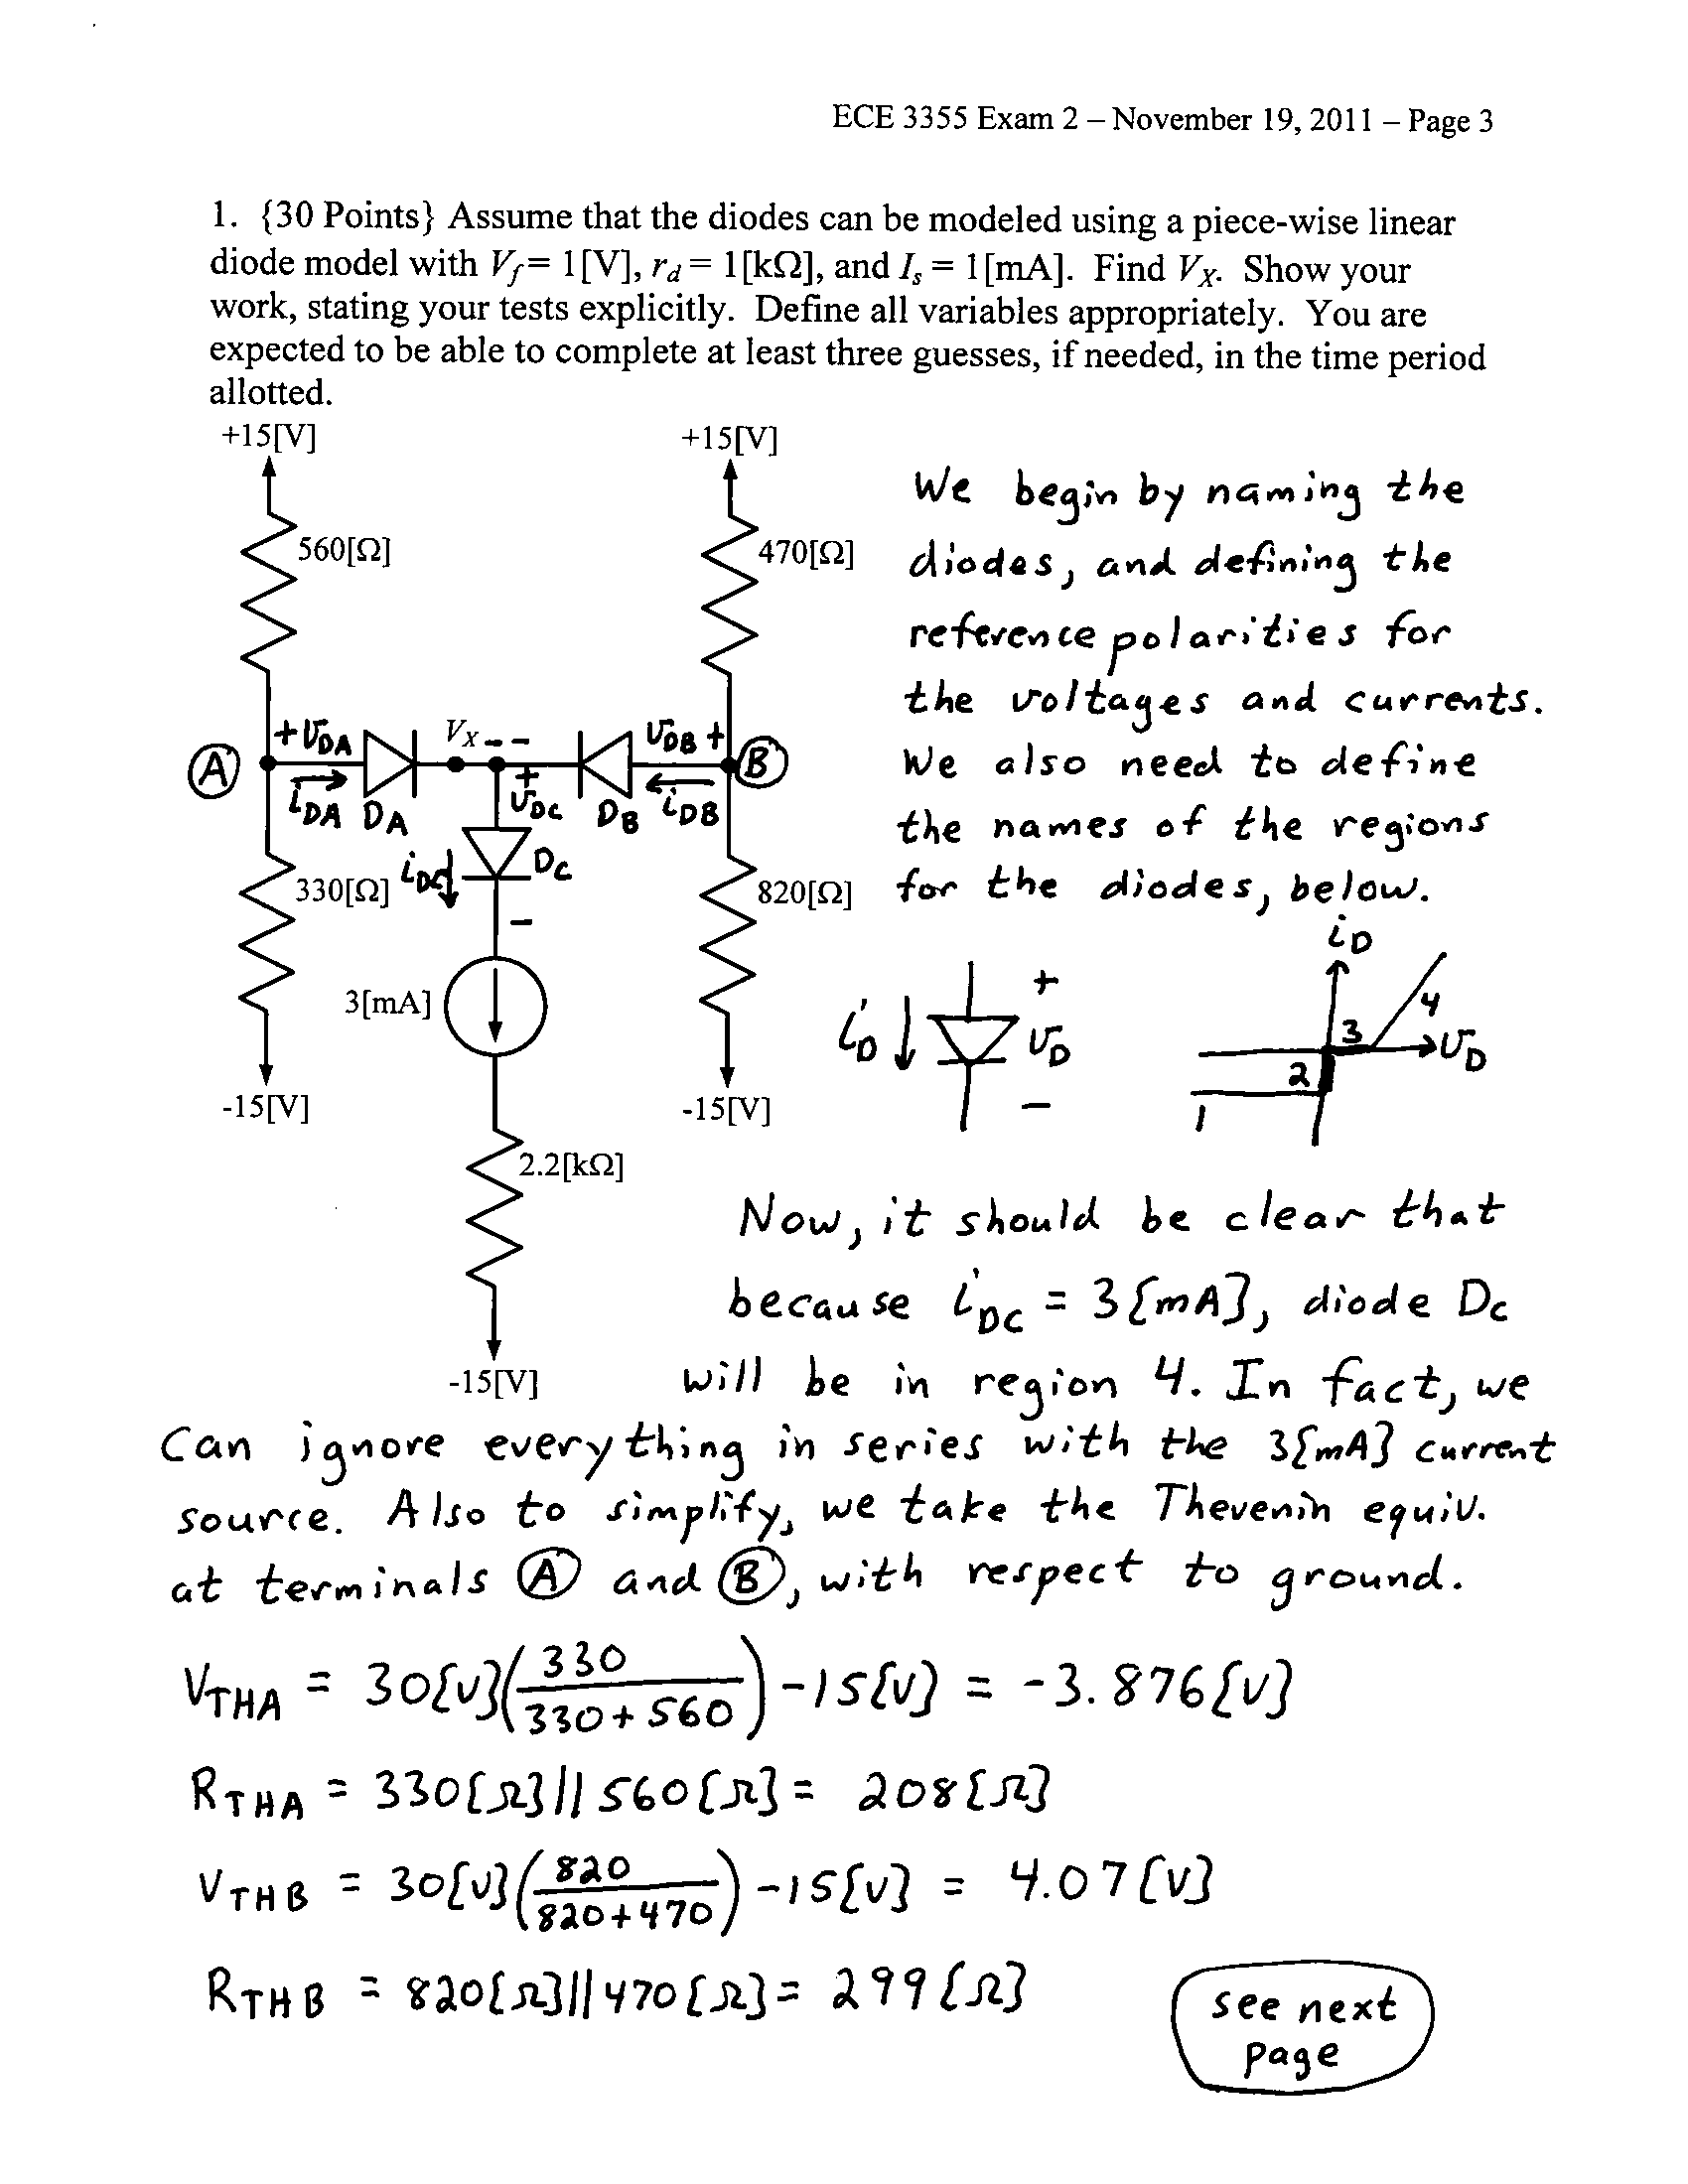 ECE 3355 Exam 2 – November 19, 2011 – Page 3
1. {30 Points} Assume that the diodes can be modeled using a piece-wise linear
diode model with Vf = 1[V], rd = 1[kΩ], and Is = 1[mA]. Find VX. Show your
work, stating your tests explicitly. Define all variables appropriately. You are
expected to be able to complete at least three guesses, if needed, in the time period
allotted.
+15[V]
+15[V]
560[Ω]
470[Ω]
We begin by naming the
diodes, and defining the
reference polarities for
the voltages and currents.
We also need to define
the names of the regions
for the diodes, below.
+ vDA
VX - -
vDB +
A
B
iDA DA
+
vDC
DB iDB
iDC
DC
-
330[Ω]
820[Ω]
3[mA]
iD
+
vD
-
iD
4
3
vD
2
1
-15[V]
-15[V]
2.2[kΩ]
-15[V]
Now, it should be clear that
because iDC = 3[mA], diode DC
will be in region 4. In fact, we
can ignore everything in series with the 3[mA] current
source. Also to simplify, we take the Thevenin equiv.
at terminals A and B, with respect to ground.
VTHA = 30[V](330/(330+560)) -15[V] = -3.876[V]
RTHA = 330[Ω]||560[Ω] = 208[Ω]
VTHB = 30[V](820/(820+470)) -15[V] = 4.07[V]
RTHB = 820[Ω]||470[Ω] = 299[Ω]
see next
page